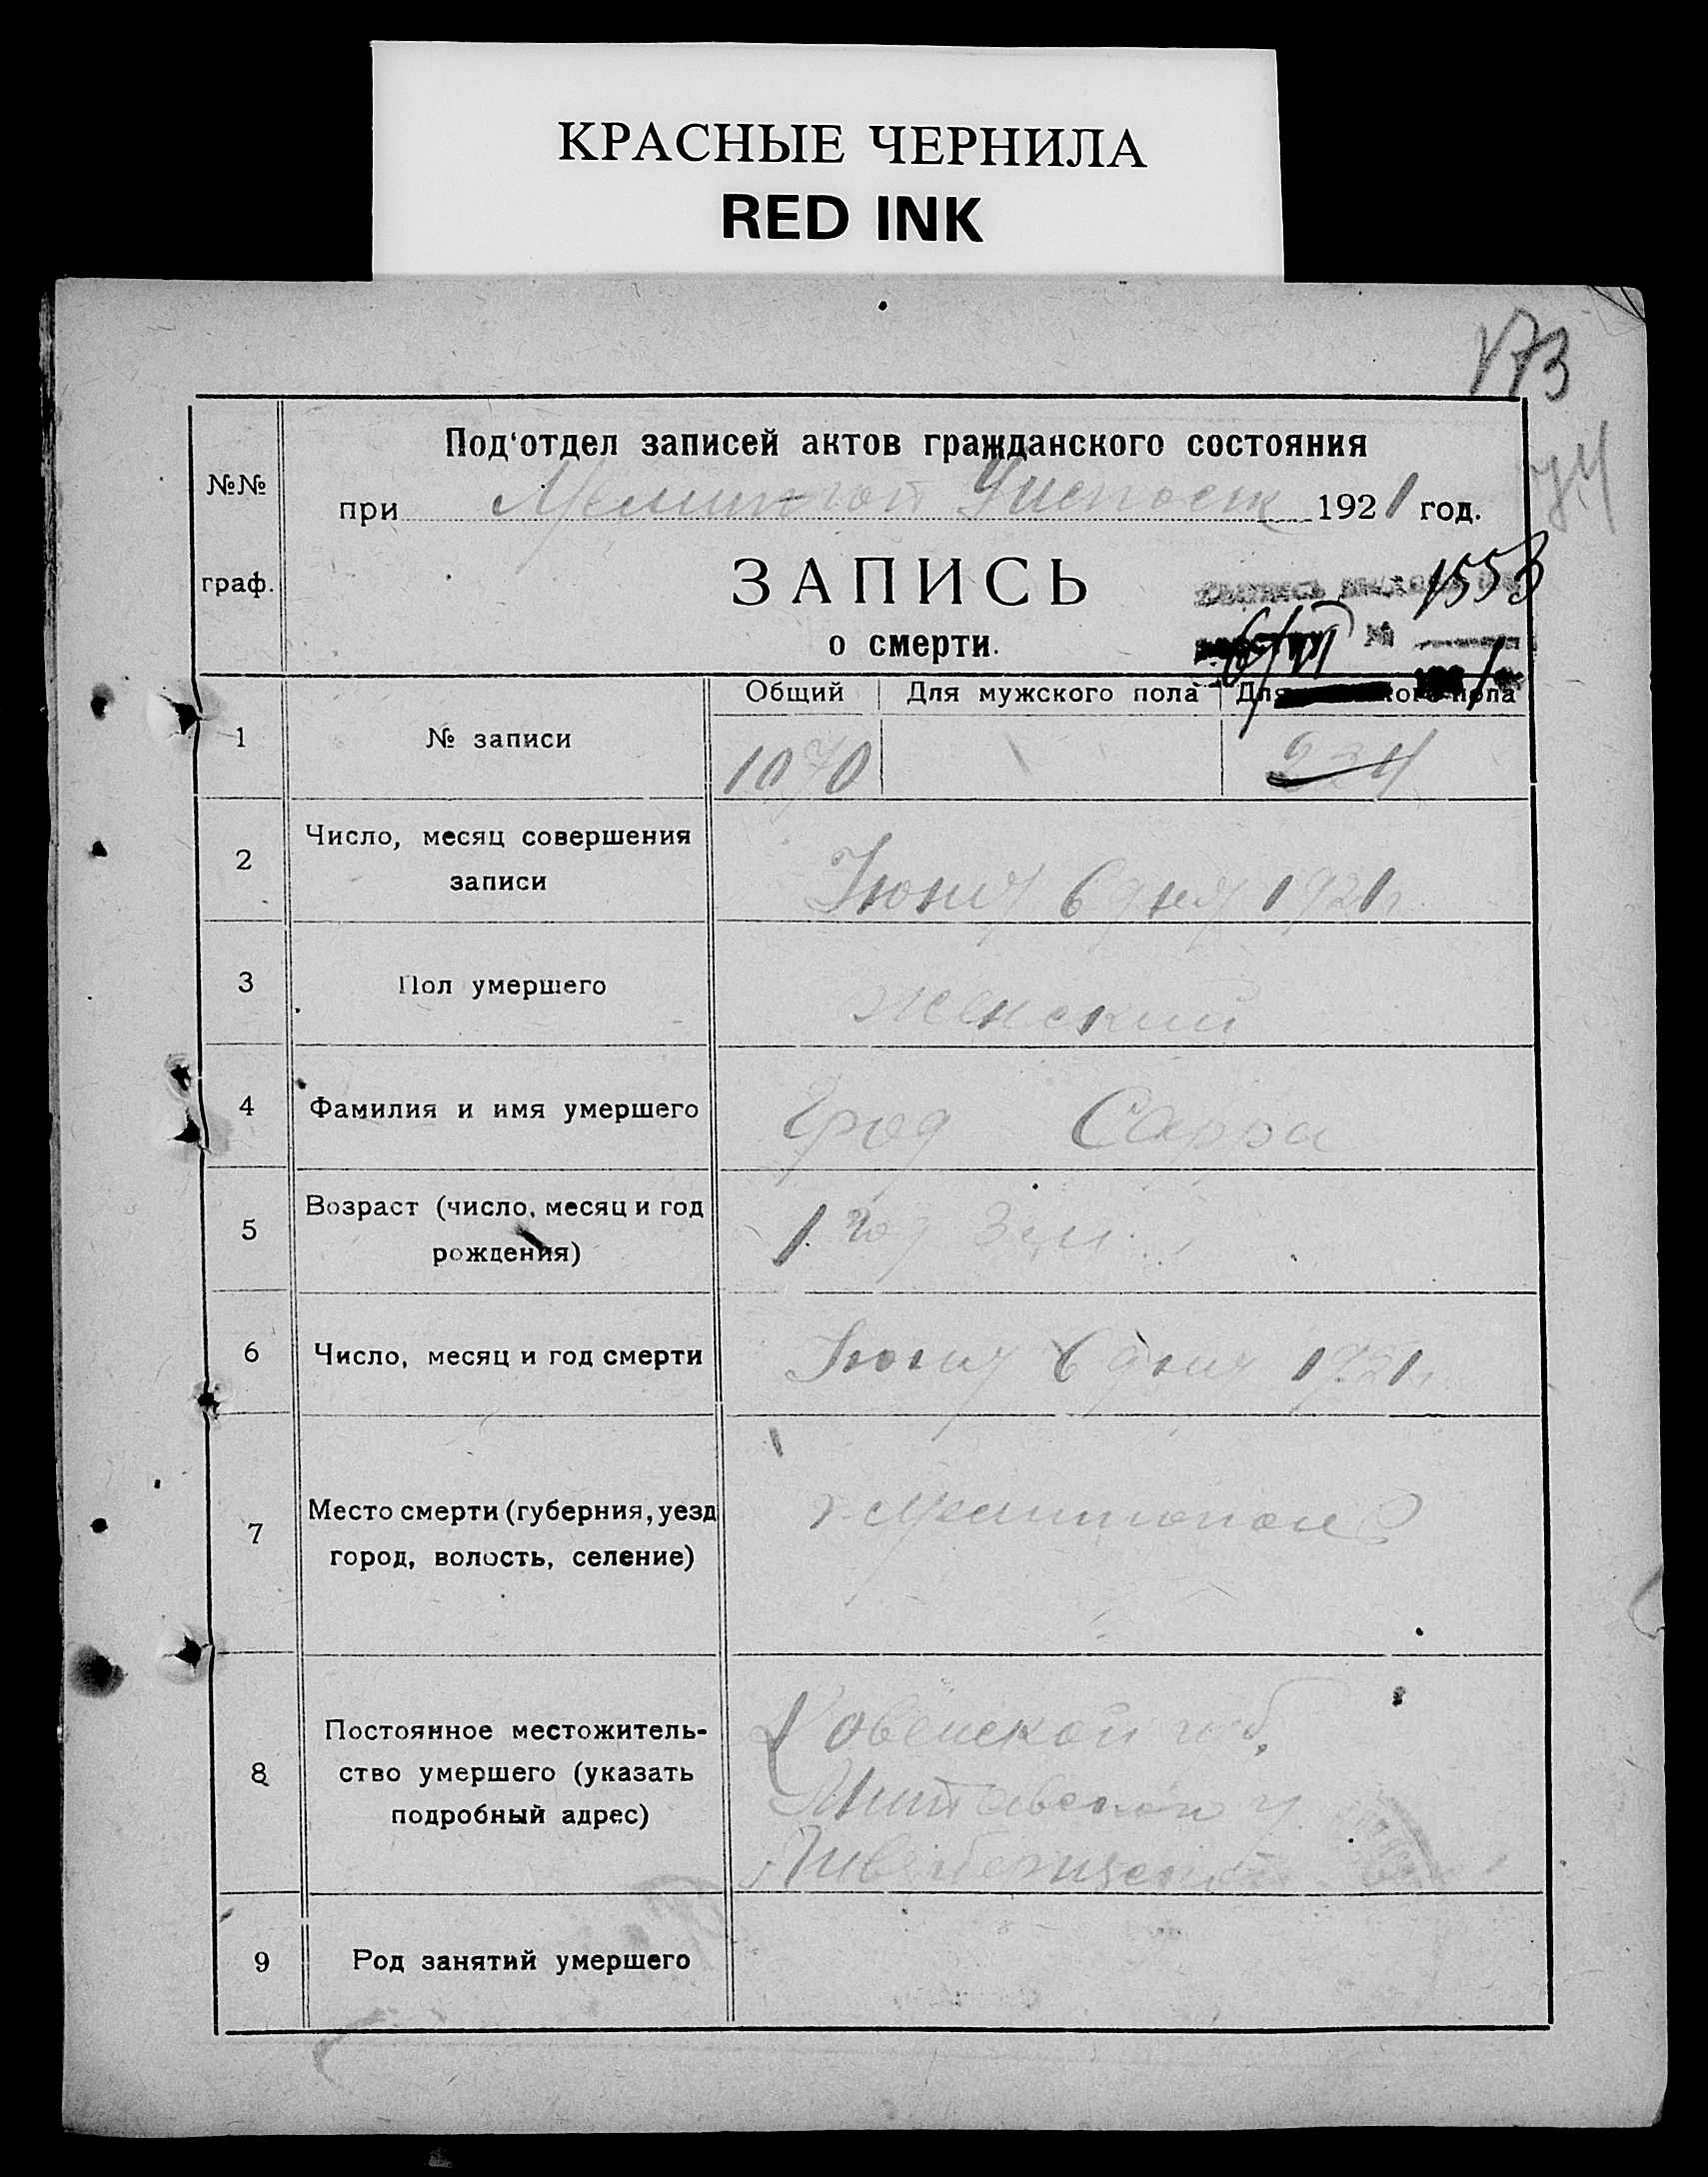 КРАСНЫЕ ЧЕРНИЛА
RED INK
173
74
Под'отдел записей актов гражданского состояния
№№
при Мелитоп Уиспоск 1921 год.
граф.
ЗАПИСЬ
1553
о смерти.
6/VI №
Общий Для мужского пола
1 № записи 1070 534
2 Число, месяц совершения
записи
Июня 6 дня 1921 г.
3 Пол умершего женский
4 Фамилия и имя умершего Грод Сарра
5 Возраст (число, месяц и год
рождения)
1 год 3 м.
6 Число, месяц и год смерти Июня 6 дня 1921 г.
7 Место смерти (губерния, уезд
город, волость, селение)
г. Мелитополь
8 Постоянное местожитель-
ство умершего (указать
подробный адрес)
Ковенской губ.
9 Род занятий умершего